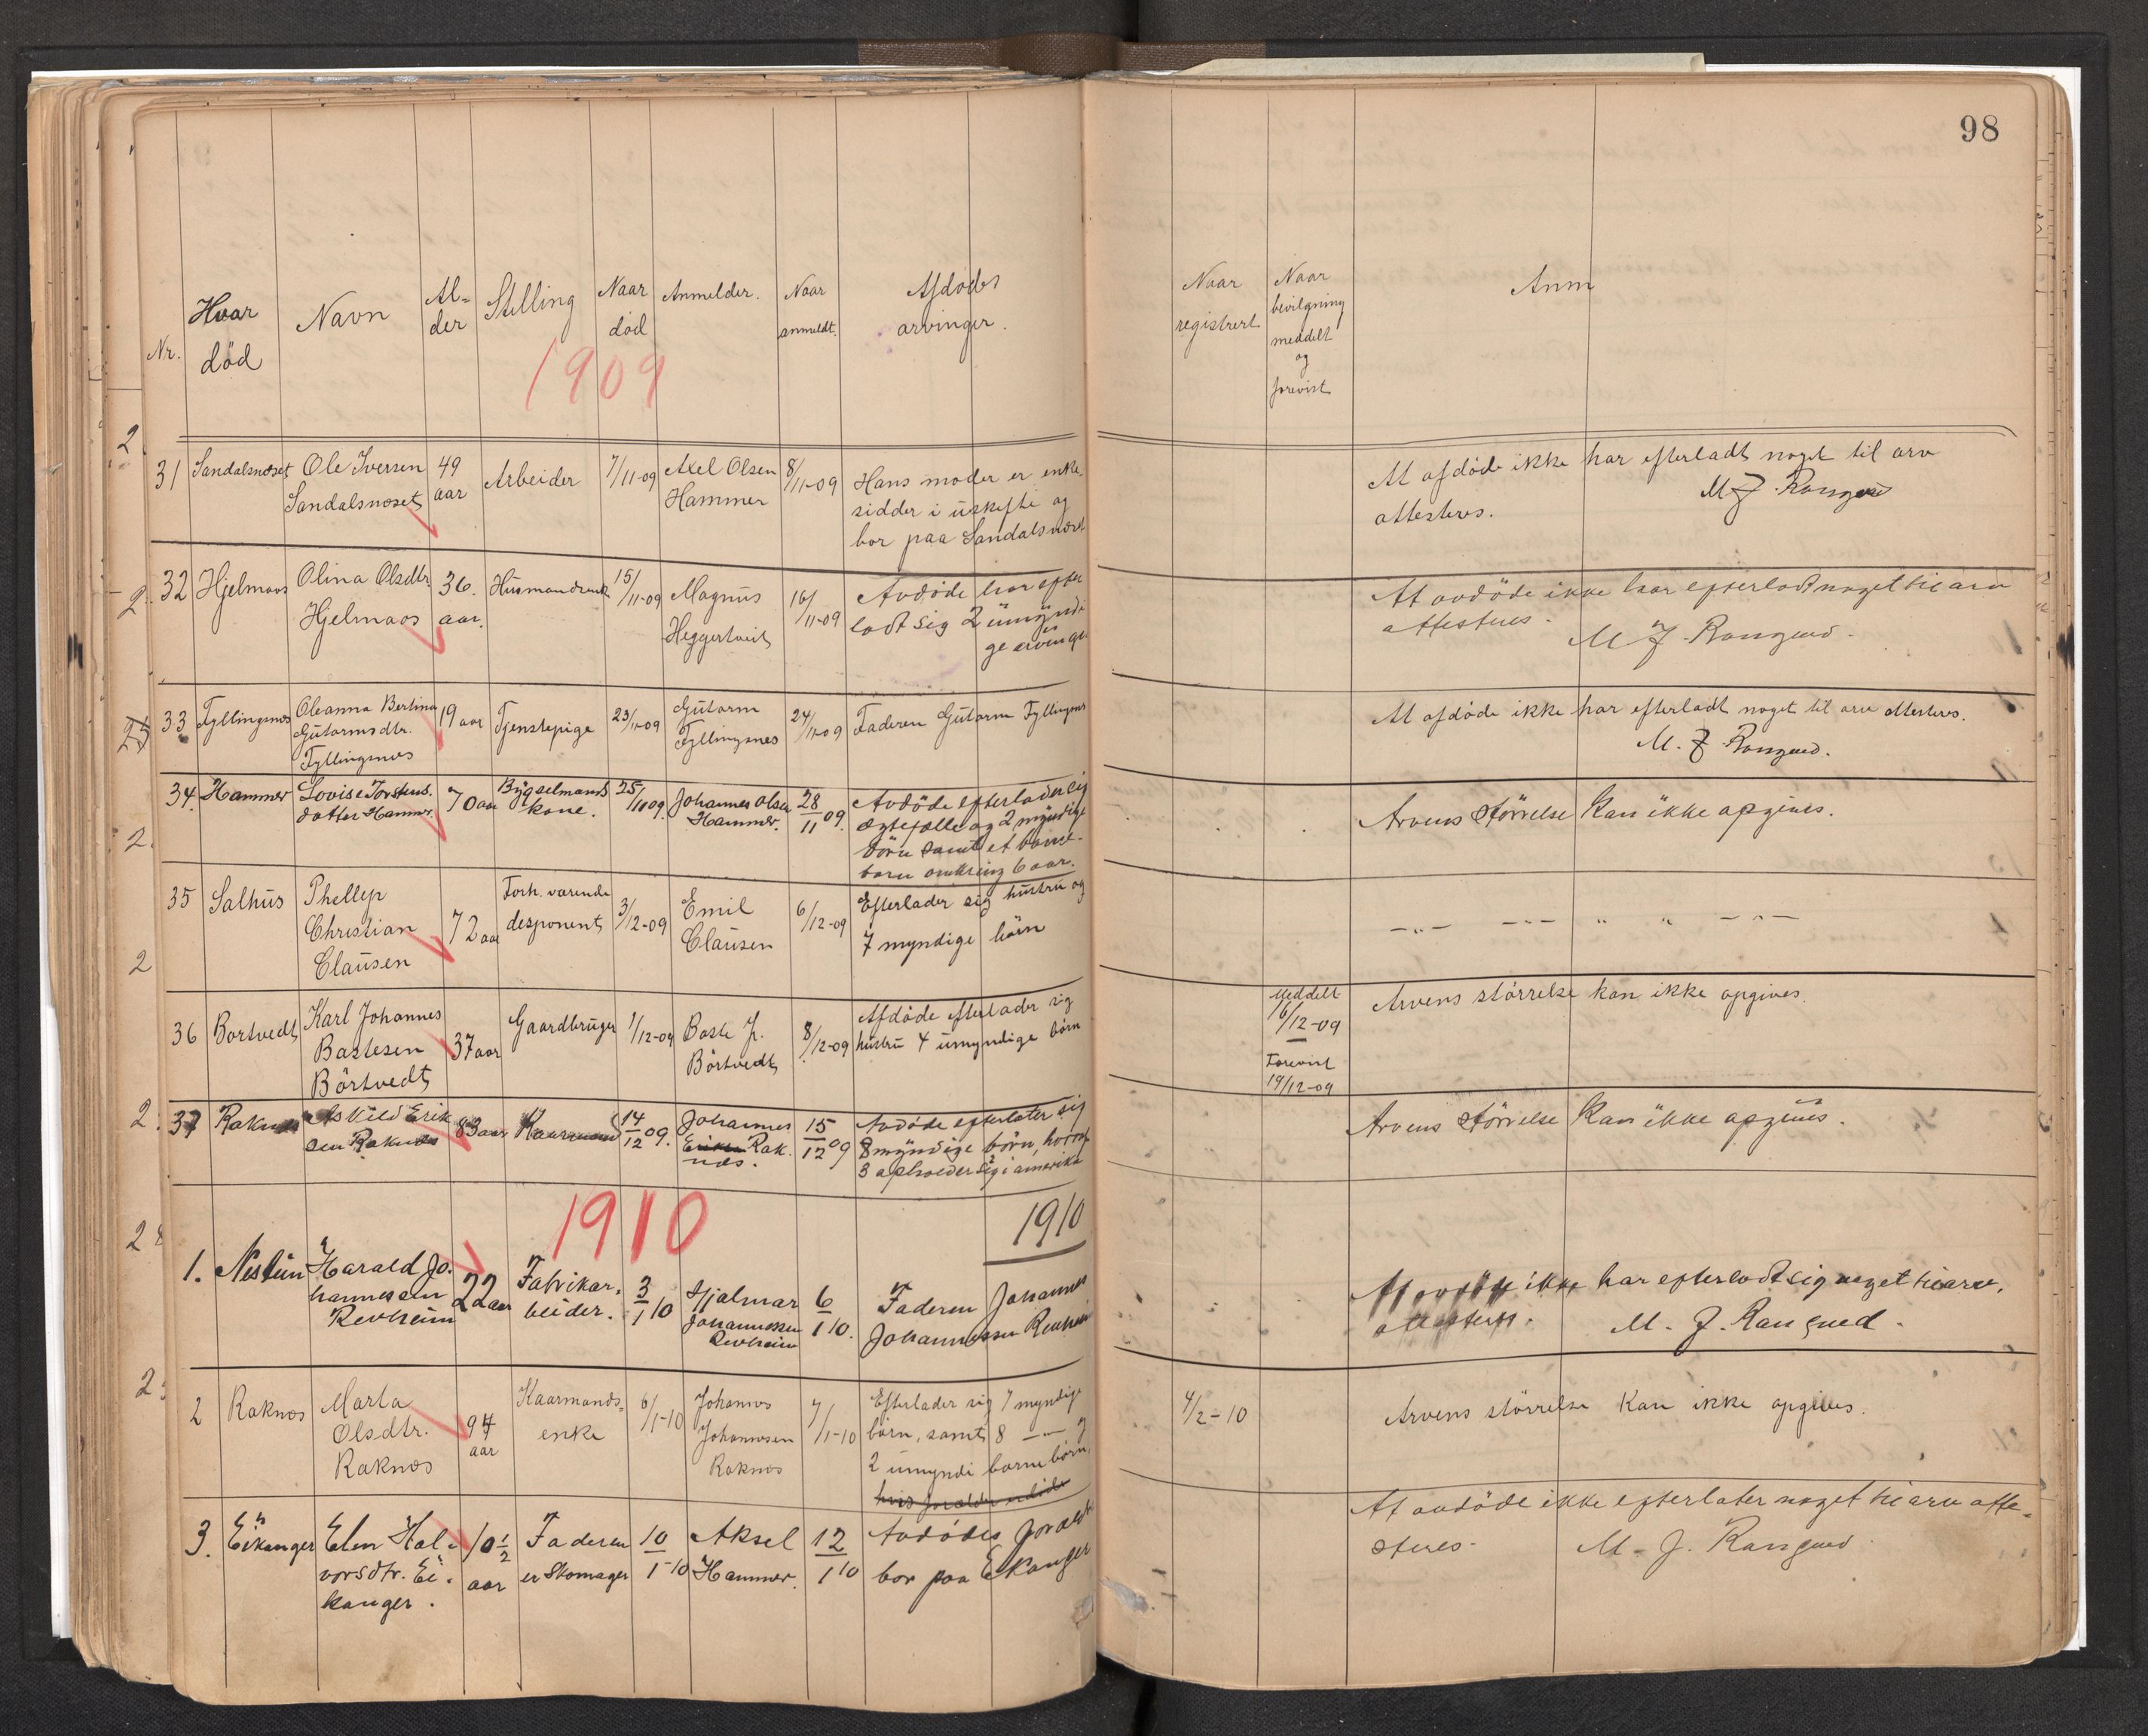 98
Nr.
Hvor
død
Navn
Al-
der
Stilling
Naar
død
Anmelder.
Naar
anmeldt.
Afdødes
arvinger.
Naar
registrert
Naar
bevilgning
meddelt
og
forevist
Anm
1909
31
Sandalsnæset
Ole Iversen
Sandalsnæset
49
aar
Arbeider
7/11-09
Axel Olsen
Hammer
8/11-09
Hans moder er enke
sidder i uskifte og
bor paa Sandalsnæset
At afdøde ikke har efterladt noget til arv
attesteres.
32
Hjelmaas
Olina Olsdtr.
Hjelmaas
36.
aar.
15/11-09
Magnus
Heggertveit
16/11-09
Avdøde har efter
ladt sig 2 umyndi
ge arvinger
At avdøde ikke har efterladt noget til arv
attesteres.
33
Fyllingsnes
Oleanna Bertina
Gutormsdtr.
Fyllingsnes
19 aar
Tjenstepige
23/11-09
Gutorm
Fyllingsnes
24/11-09
Faderen Gutorm Fyllingsnes
At afdøde ikke har efterladt noget til arv attesteres.
34.
Hammer
Lovise Torstens.
datter Hammer.
70 aar
Bygselmands
kone.
25/11 09.
Johannes Olsen
Hammer.
28/11 09.
Avdøde efterlader sig
ægtefælle og 2 myndige
børn samt et barne-
barn omkring 6 aar.
Arvens størrelse kan ikke opgives.
35
Salhus
Phellip
Christian
Clausen
72 aar
Forh. værende
desponent
3/12-09
Emil
Clausen
6/12-09
Efterlader sig hustru og
7 myndige børn
—„— —„— „ „ —„—
36
Bortvedt
Karl Johannes
Bastesen
Børtvedt
37 aar
Gaardbruger
1/12-09
Baste J.
Børtvedt
8/12-09
Afdøde efterlader sig
hustru 4 umyndige børn
Meddelt
16/12-09
Forevist
19/12-09
Arvens størrelse kan ikke opgives.
37
Raknes
Askild Erik
sen Raknes
83 aar
Kaarmand
14/12 09.
Johannes
Rak.
nes.
15/12 09
Avdøde efterlater sig
8 myndige børn, hvoraf
3 opholder sig i amerika
Arvens størrelse kan ikke opgives.
1910
1910
1.
Harald Jo.
hannesen
Revheim
22 aar
Fabrikar.
beider.
3/1 10
Hjalmar
Johannessen
Revheim
6/1 10.
Faderen Johannes
Johannessen Revheim
At avdøde ikke har efterladt sig noget til arv.
attesteres.
2
Raknes
Marta
Olsdtr.
Raknes
94
aar
Kaarmands-
enke
6/1-10
Johannes
Johannesen
Raknes
7/1-10
Efterlader sig 7 myndige
børn, samt 8 —„— og
2 umyndi barnebørn,
4/2-10
Arvens størrelse kan ikke opgives.
3.
Eikanger
Elen Hal-
vorsdtr. Ei.
kanger.
10 1/2
aar
Faderen
er Skomager
10/1-10
Aksel
Hammer.
12/1 10
Avdødes foræld
bor paa Ekanger
At avdøde ikke efterlater noget til arv atte-
steres.